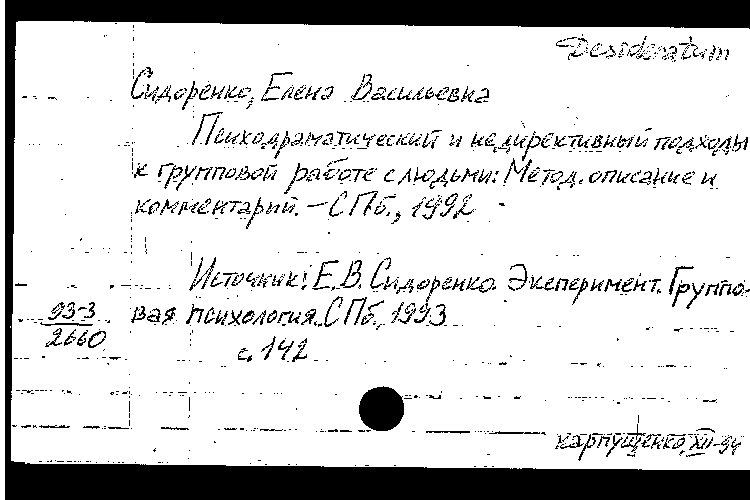 Desideratum
Сидоренко, Елена Васильевна
Психодраматический и недирективный подходы
к групповой работе с людьми: Метод. описание и
комментарий. – СПб., 1992
Источник: Е.В. Сидоренко. Эксперимент. Группо-
вая психология. СПб., 1993
93-3
2660
с. 142
Карпущенко, XII-94